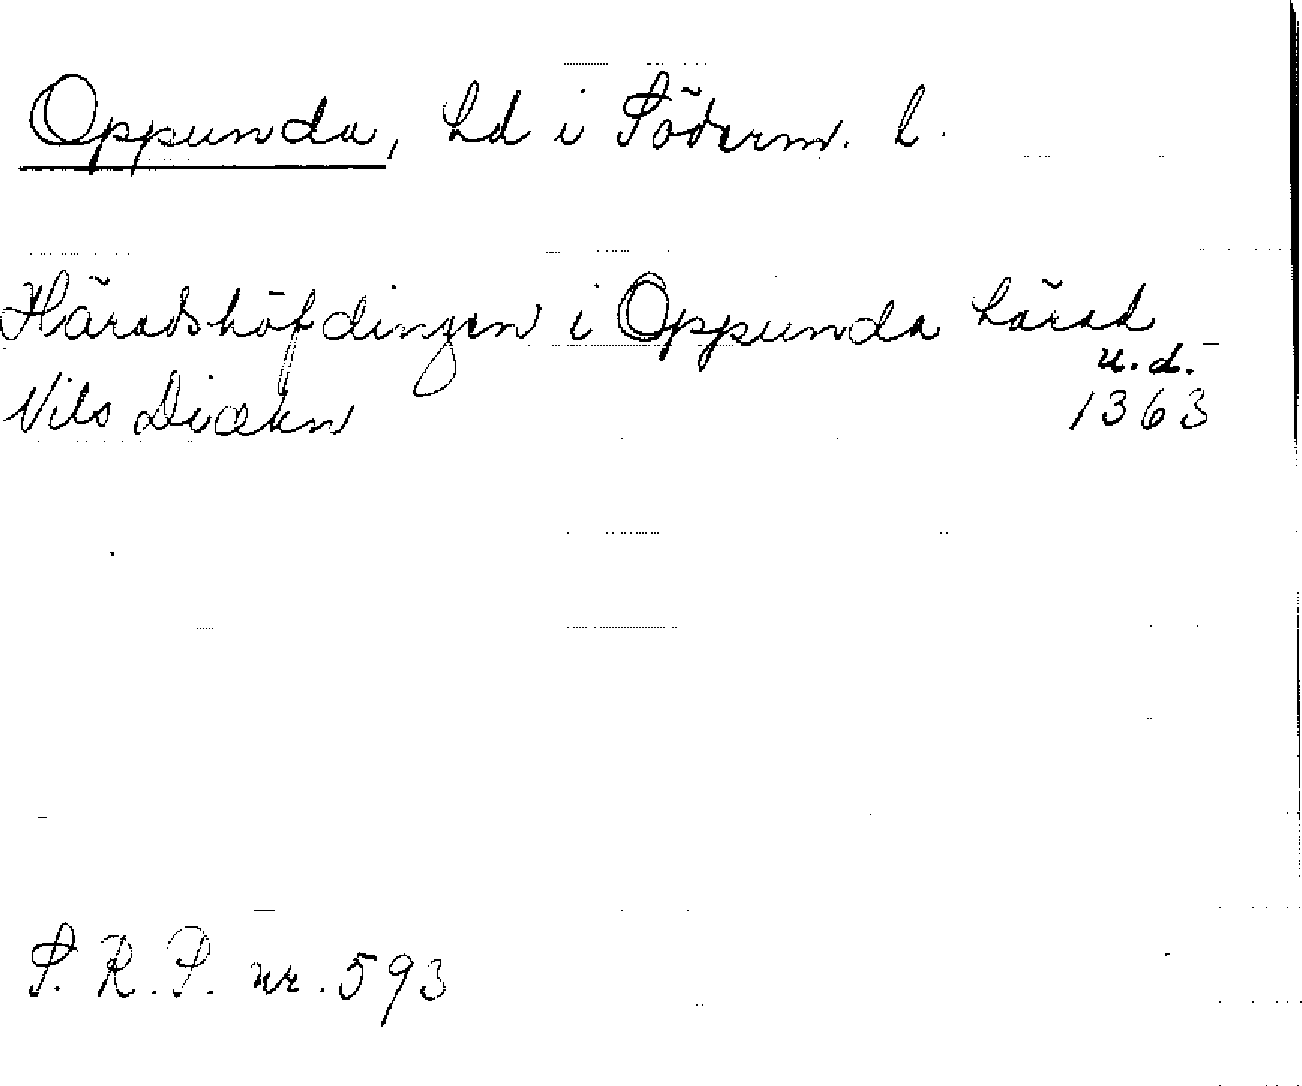 Oppunda, hd i Söderm. l.
Häradshöfdingen i Oppunda härad
u.d.
Nils Diækn 1363
S. R. P. nr. 593